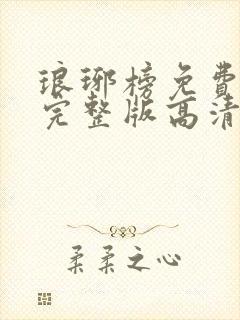 琅琊榜免费
完整版高清
柔柔之心